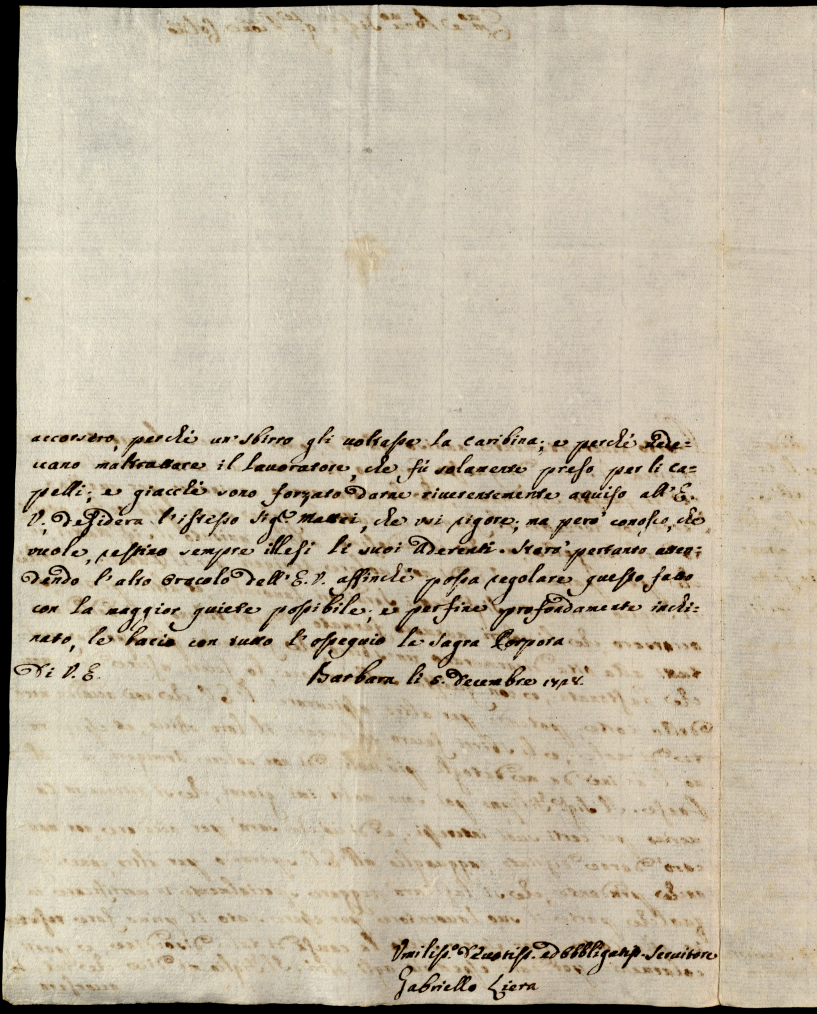 accorsero, perchè un' sbirro gli voltasse la caribina; e perchè vede-
vano maltrattare il lavoratore, che fù solamente preso per li ca-
pelli; e giacchè sono forzato darne riverentemente avviso all' E.
V., desidera l'istesso Sig.r Mattei, che usi rigore; ma però conosco, che
vuole, restino sempre illesi li suoi aderenti. Starò pertanto atten-
dendo l'alto oracolo dell' E. V. affinchè possa regolare questo fatto
con la maggior quiete possibile; e perfine profondamente inchi-
nato, le bacio con tutto l'ossequio la Sagra Porpora
Di V. E. Barbara li 5. Decembre
Umiliss.o Devotiss. ed Obbligatiss. Servitore
Gabriello